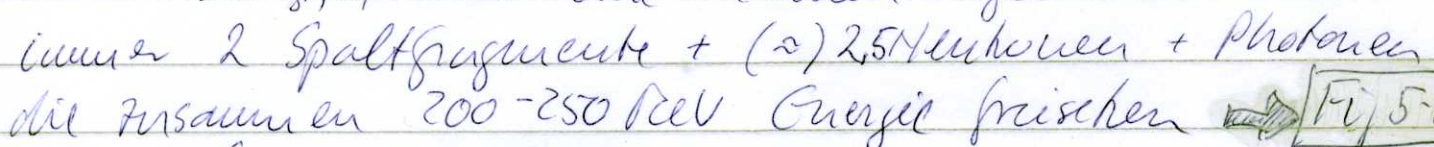 immer 2 Spaltfragmente + (≈) 2,5 Neutronen + Photonen
die zusammen 200-250 MeV Energie freisetzen ⇒ Fig 5-